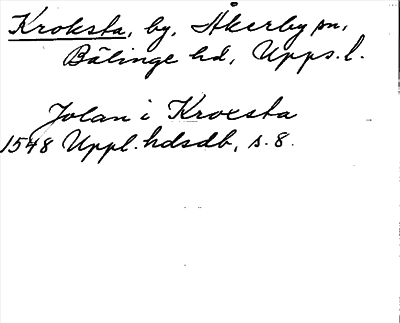 Kroksta, by, Åkerby sn,
Bälinge hd, Upps. l.
Jolan i Krocsta
1548 Uppl. hdsdb, s. 8.